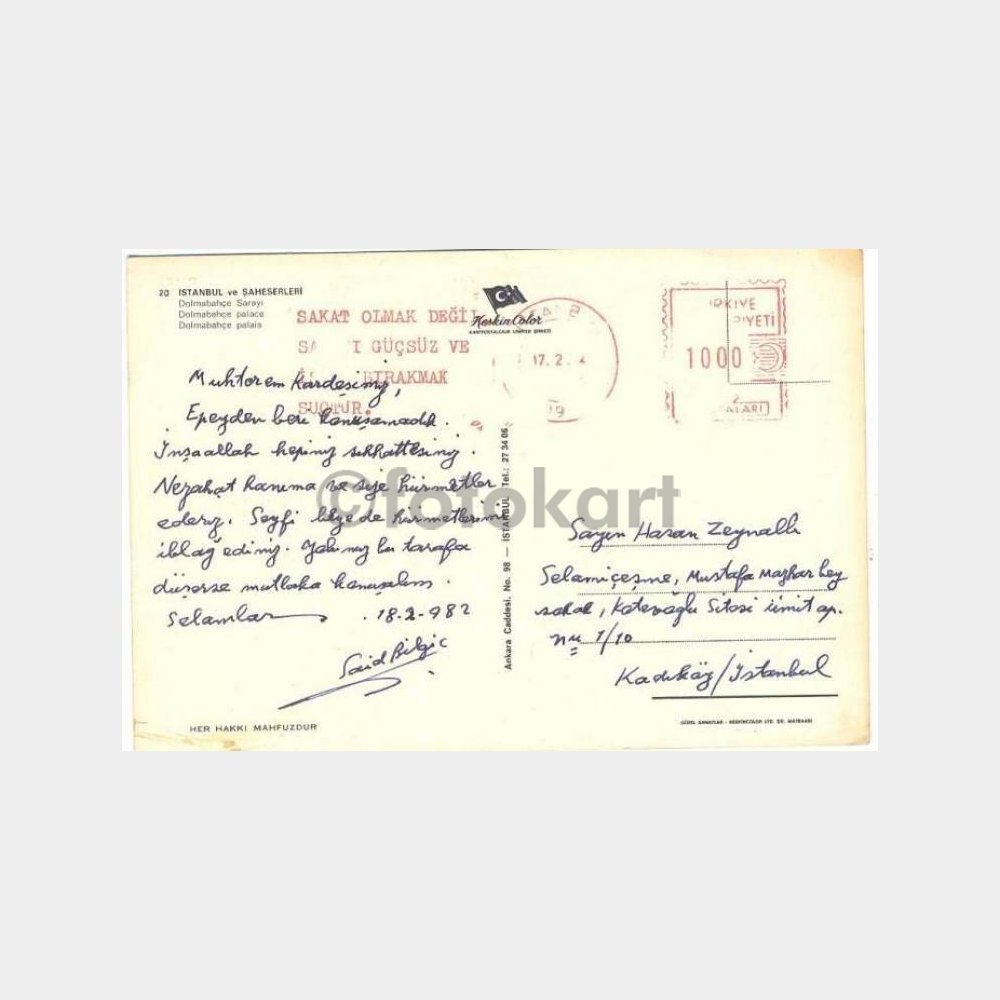 20 İSTANBUL ve ŞAHESERLERİ
Dolmabahçe Sarayı
Dolmabahçe palace
Dolmabahçe palais
SAKAT OLMAK DEĞİL
GÜÇSÜZ VE
BIRAKMAK
SUÇTUR.
Keskin Color
KARTPOSTALCILIK LIMITED ŞİRKETİ
17.2.
1000
Muhterem Kardeşimiz,
Epeyden beri konuşamadık.
İnşaallah hepiniz sıhhattesiniz.
Nezahat hanıma ve size hürmetler
ederiz. Seyfi beye de hürmetlerimi
iblağ ediniz. Yolunuz bu tarafa
düşerse mutlaka konuşalım.
Selamlar . 18-2-982
Said Bilgiç
HER HAKKI MAHFUZDUR
Ankara Caddesi. No. 98 — İSTANBUL Tel.: 27 34 06
Sayın Hasan Zeynallı
Selamiçeşme, Mustafa Mazhar bey
sokak, Ümit ap.
nu 1/10
Kadıköy/İstanbul
GÜZEL SANATLAR - KESKİNCOLOR LTD. ŞTİ. MATBAASI
©fotokart